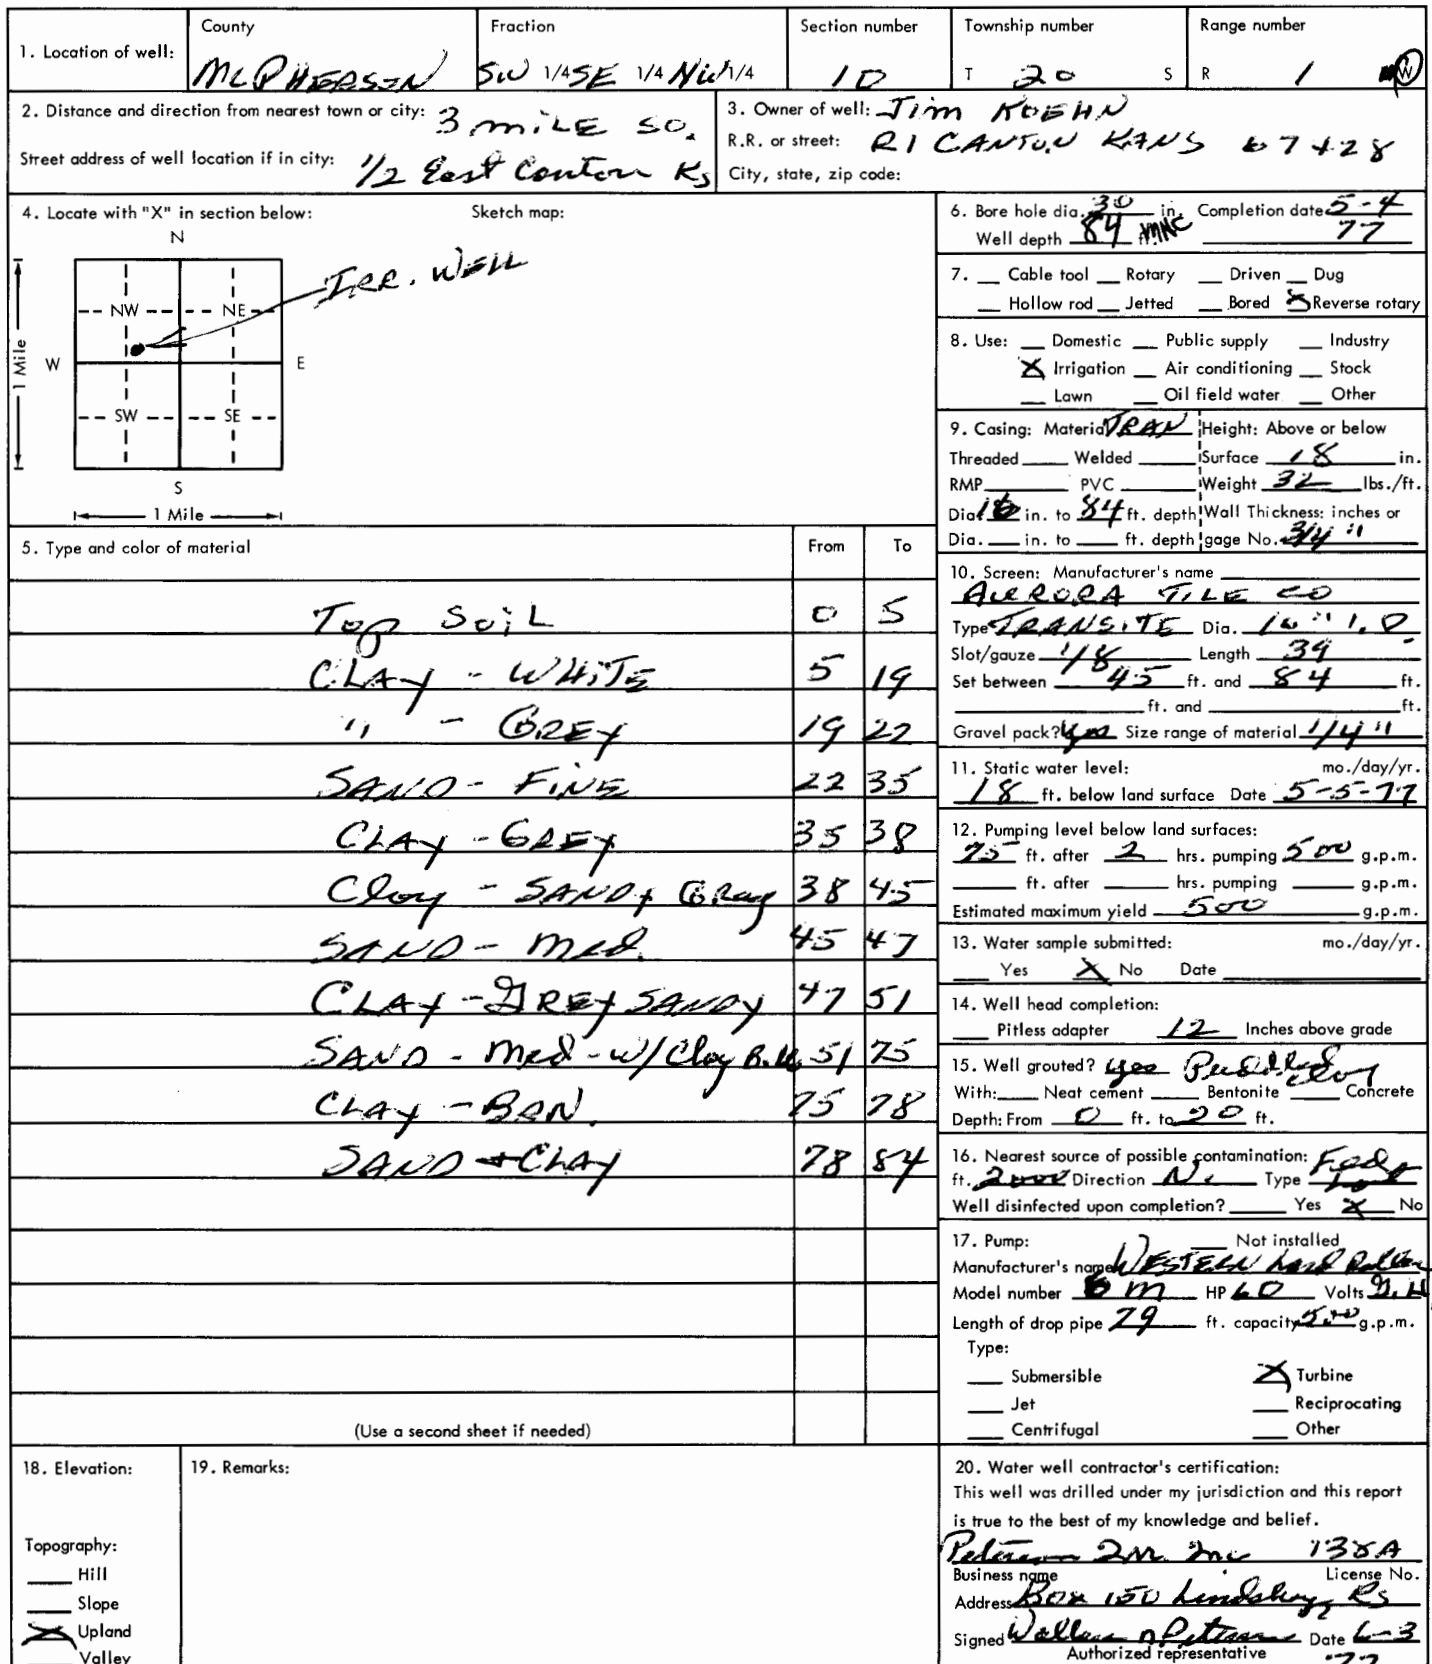 County Fraction Section number Township number Range number
1. Location of well: McPHERSON SW 1/4 SE 1/4 NW 1/4 10 T 20 S R 1 W
2. Distance and direction from nearest town or city: 3 MiLE SO.
Street address of well location if in city: 1/2 East Canton Ks
3. Owner of well: Jim KOEHN
R.R. or street: R1 CANTON KANS 67428
City, state, zip code:
4. Locate with "X" in section below: Sketch map:
N
IRR. WELL
NW NE
W E
1 Mile
SW SE
S
1 Mile
5. Type and color of material From To
Top SoiL 0 5
CLAY - WHiTE 5 19
" - GREY 19 22
SAND - FiNE 22 35
CLAY - GREY 35 38
Clay - SANDY Gray 38 45
SAND - Med. 45 47
CLAY - GREY SANDY 47 51
SAND - Med - w/Clay 51 75
CLAY - BRN. 75 78
SAND + CLAY 78 84
(Use a second sheet if needed)
6. Bore hole dia. 30 in. Completion date 5-4
Well depth 84 77
7. Cable tool Rotary Driven Dug
Hollow rod Jetted Bored X Reverse rotary
8. Use: Domestic Public supply Industry
X Irrigation Air conditioning Stock
Lawn Oil field water Other
9. Casing: Material TRAN Height: Above or below
Threaded Welded Surface 18 in.
RMP PVC Weight 32 lbs./ft.
Dia. 16 in. to 84 ft. depth Wall Thickness: inches or
Dia. in. to ft. depth gage No. 3/4"
10. Screen: Manufacturer's name
AURORA TILE CO
Type TRANSITE Dia. 16" I.D.
Slot/gauze 1/8 Length 39
Set between 45 ft. and 84 ft.
ft. and ft.
Gravel pack? Yes Size range of material 1/4"
11. Static water level: mo./day/yr.
18 ft. below land surface Date 5-5-77
12. Pumping level below land surfaces:
75 ft. after 2 hrs. pumping 500 g.p.m.
ft. after hrs. pumping g.p.m.
Estimated maximum yield 500 g.p.m.
13. Water sample submitted: mo./day/yr.
Yes X No Date
14. Well head completion:
Pitless adapter 12 Inches above grade
15. Well grouted? yes Puddled Clay
With: Neat cement Bentonite Concrete
Depth: From 0 ft. to 20 ft.
16. Nearest source of possible contamination: Feed
ft. 2000 Direction N. Type Lot
Well disinfected upon completion? Yes X No
17. Pump: Not installed
Manufacturer's name WESTERN Land Roller
Model number M HP 60 Volts
Length of drop pipe 79 ft. capacity 500 g.p.m.
Type:
Submersible X Turbine
Jet Reciprocating
Centrifugal Other
18. Elevation: 19. Remarks:
Topography:
Hill
Slope
X Upland
Valley
20. Water well contractor's certification:
This well was drilled under my jurisdiction and this report
is true to the best of my knowledge and belief.
Peterson Irr. Inc 138A
Business name License No.
Address Box 150 Lindsborg, Ks
Signed Peterson Date 6-3
Authorized representative 77